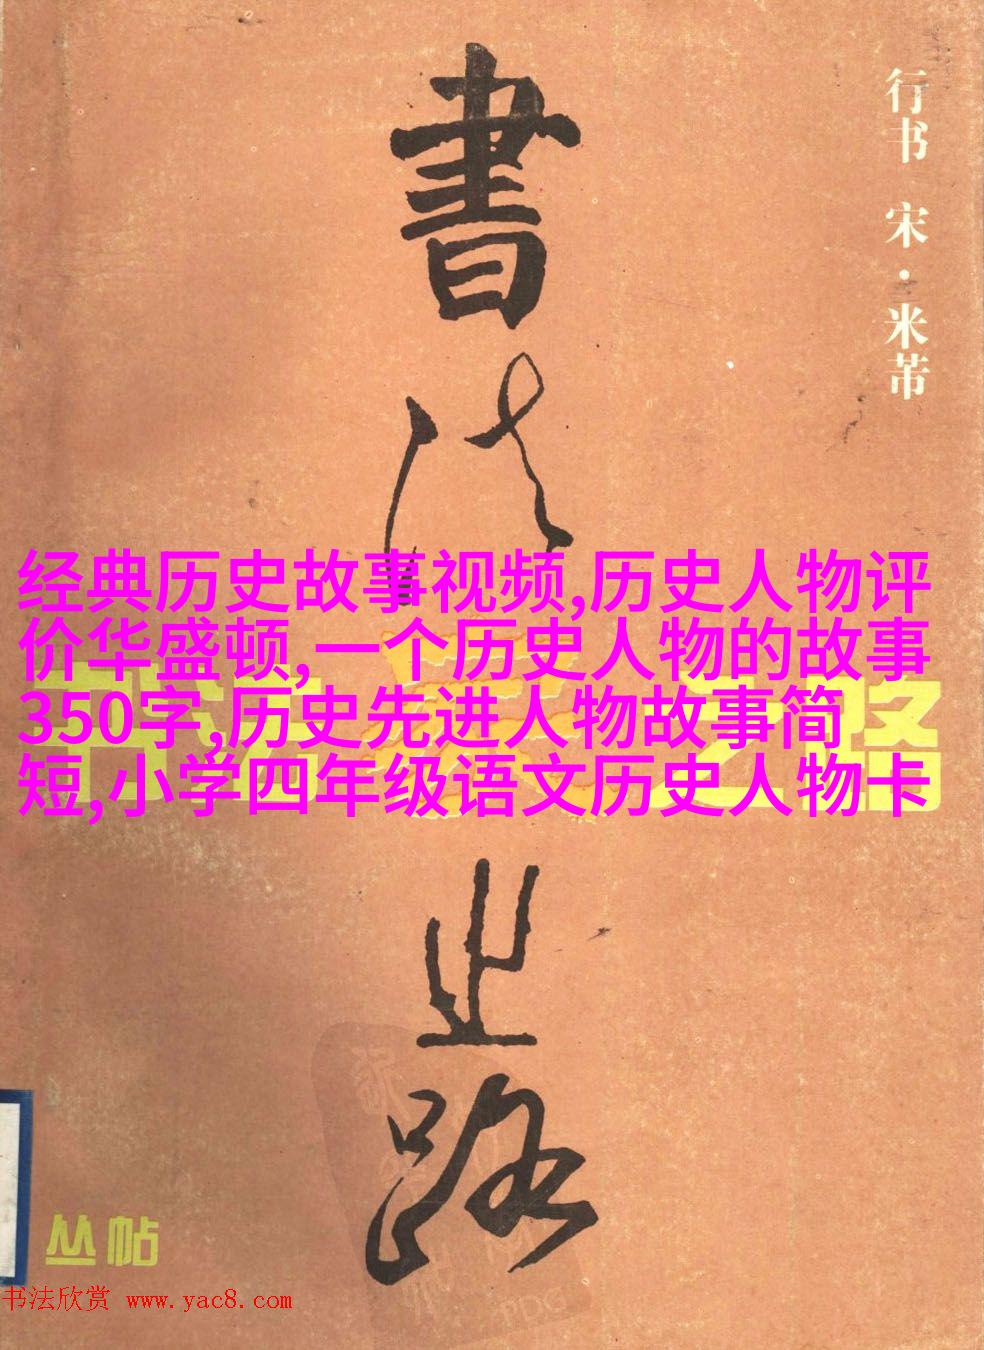 行书 宋·米芾
書法
之路
经典历史故事视频,历史人物评
价华盛顿,一个历史人物的故事
350字,历史先进人物故事简
短,小学四年级语文历史人物卡
丛帖
书法欣赏 www.yac8.com